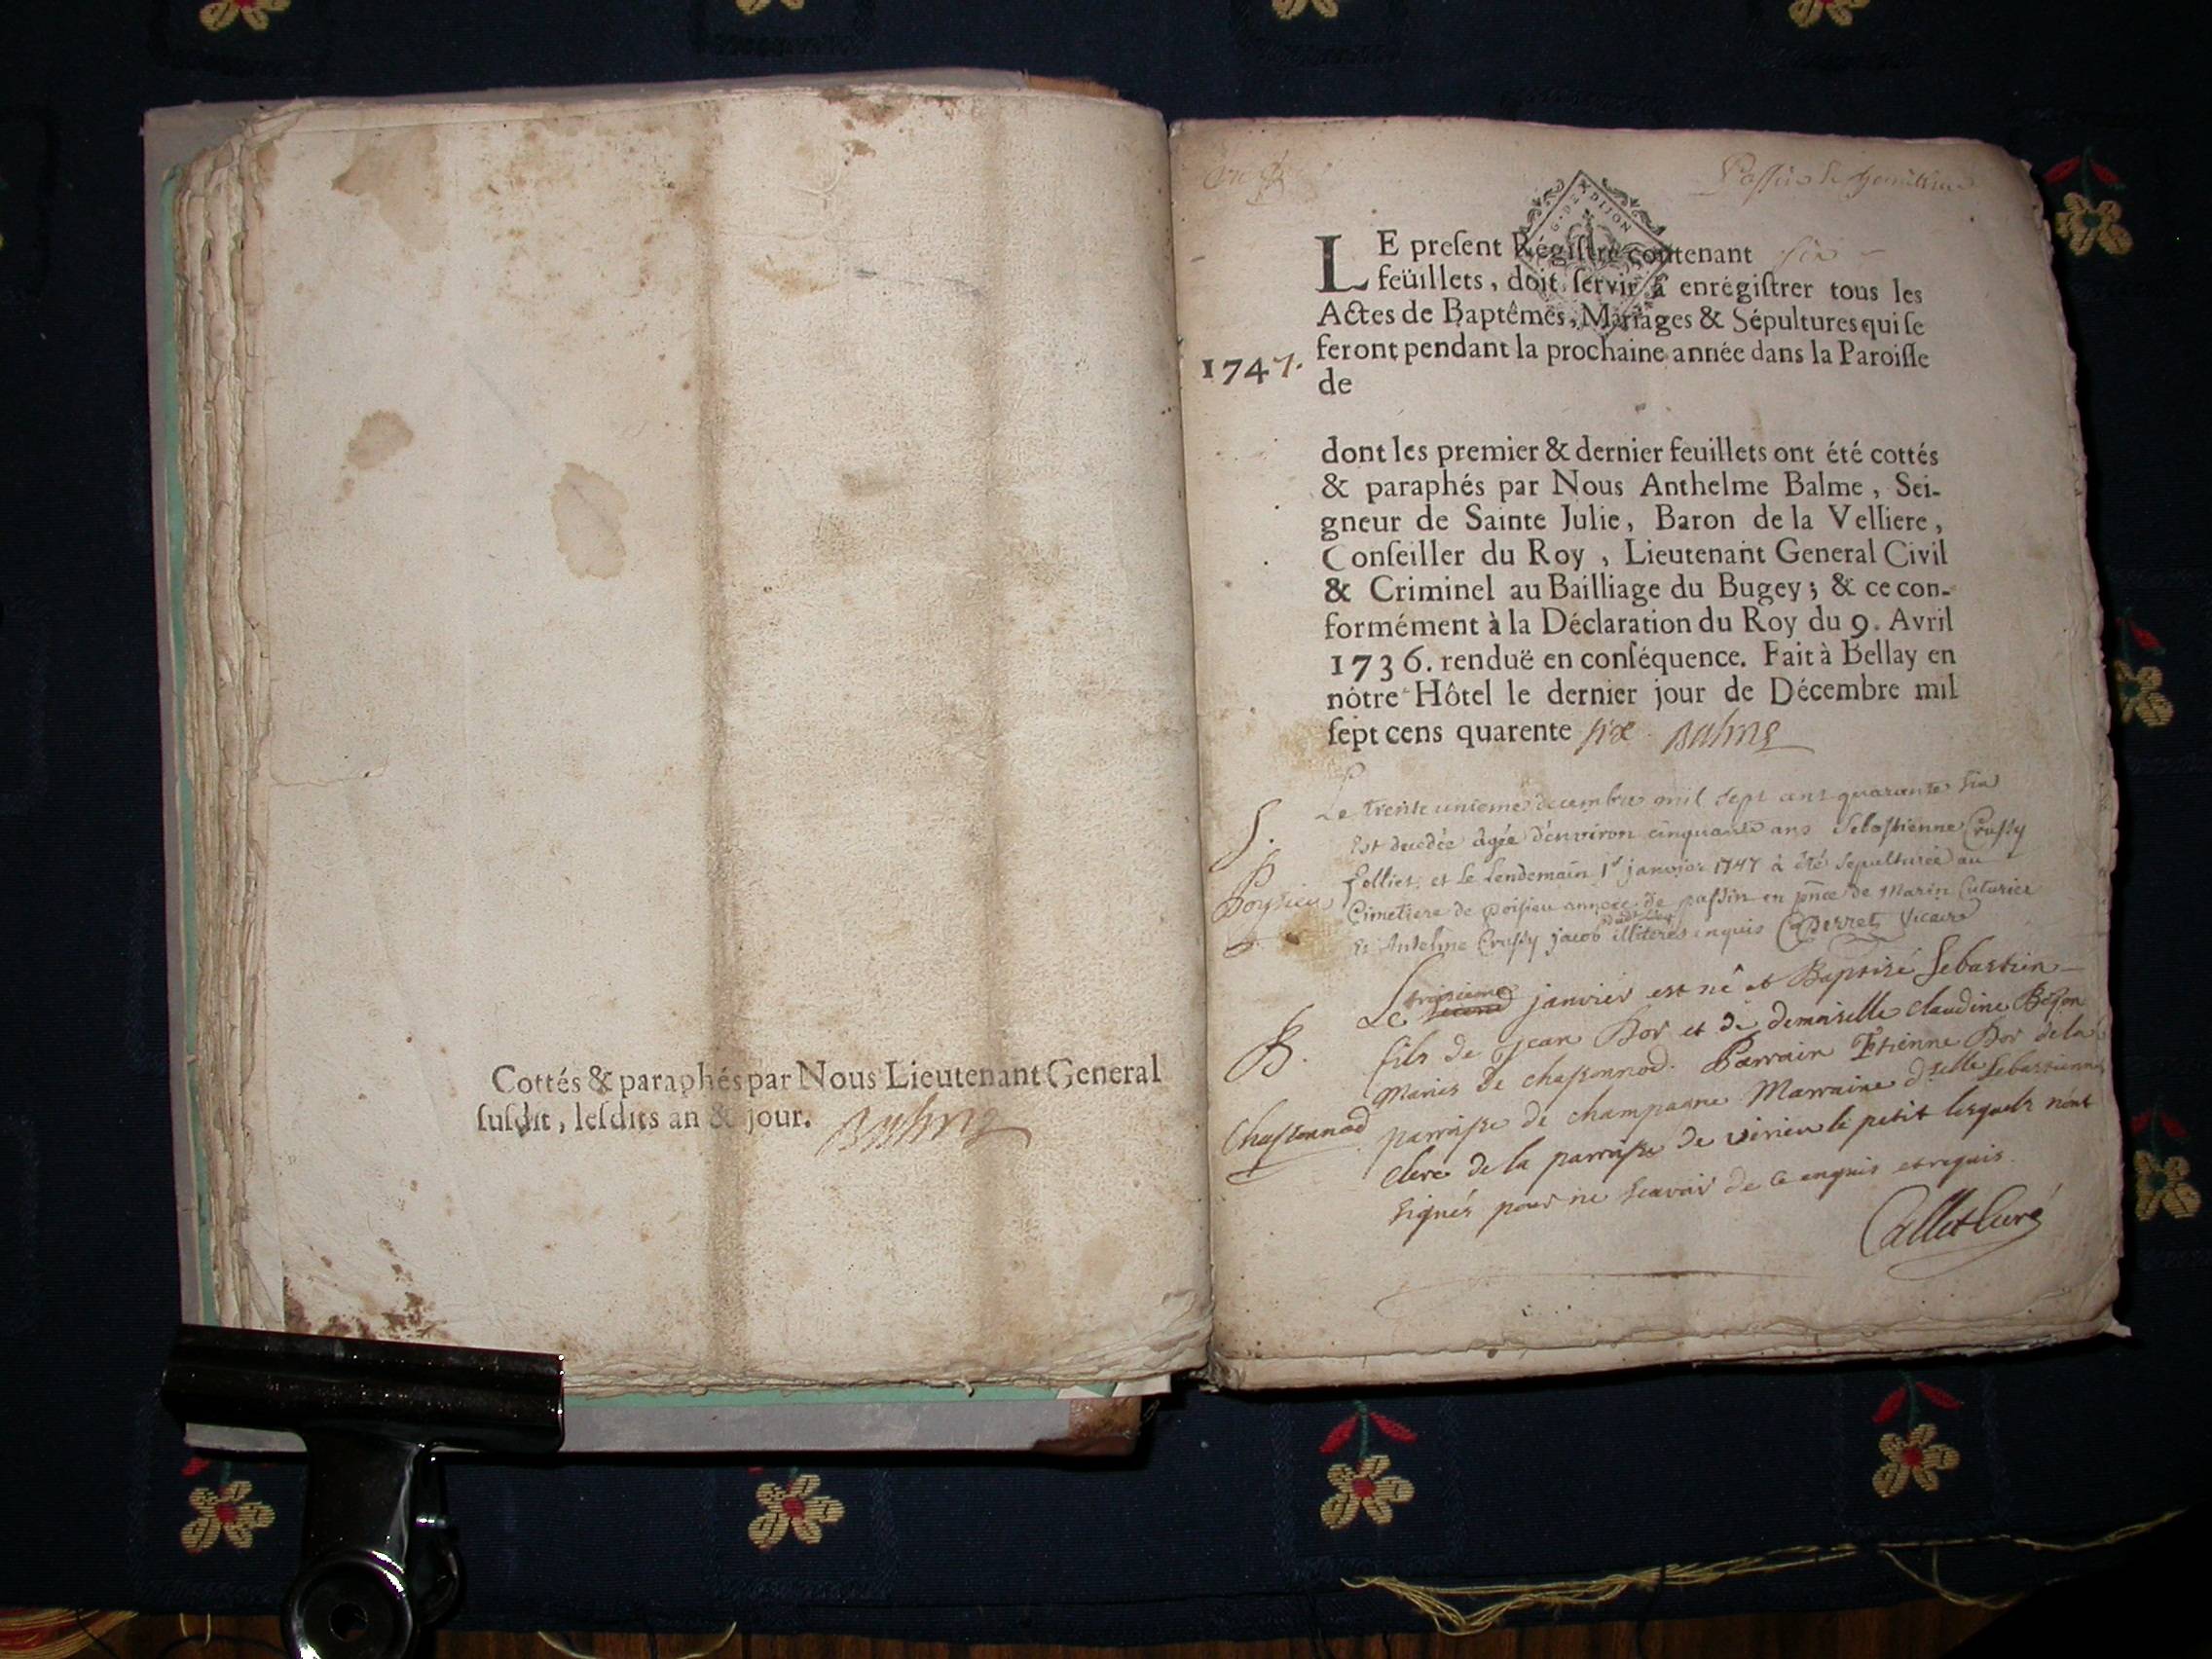 Cottés & paraphés par Nous Lieutenant General
ſuſdit, leſdits an & jour. Balme
G. DE DIJON
LE preſent Régiſtre contenant six
feüillets, doit ſervir à enrégiſtrer tous les
Actes de Baptêmes, Mariages & Sépultures qui ſe
feront pendant la prochaine année dans la Paroiſſe
1747.
de
dont les premier & dernier feuillets ont été cottés
& paraphés par Nous Anthelme Balme, Sei-
gneur de Sainte Julie, Baron de la Velliere,
Conſeiller du Roy, Lieutenant General Civil
& Criminel au Bailliage du Bugey; & ce con-
formément à la Déclaration du Roy du 9. Avril
1736. renduë en conſéquence. Fait à Bellay en
nôtre Hôtel le dernier jour de Décembre mil
ſept cens quarente six Balme
S.
Le trente unieme decembre mil sept cent quarante six
est decedée agée d'environ cinquante ans Sebastienne Crussy
et le lendemain 1r janvier 1747 à été sepulturée au
Poysieu
Cimetiere de poisieu annexe de passin en pnce de Marin Cuturier
et Antelme Crussy jacob illiteres enquis Perret vicaire
B.
Le troisieme janvier est né et Baptisé Sebastien
fils de Jean Bor et de demoiselle claudine
Mariés de chassonnod. Parrain Etienne Bor de la
Chassonnod
parroisse de champagne Marraine dselle Sebastienne
clerc de la parroisse de virieu le petit lesquels n'ont
signés pour ne scavoir de ce enquis et requis
Callet Curé